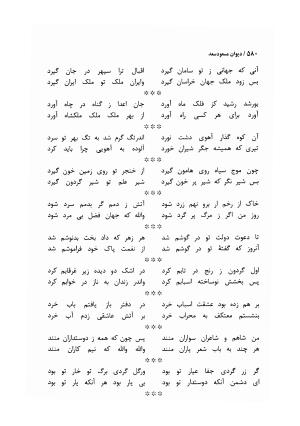 ۵۸۰ / دیوان مسعودسعد
آنی که جهانی ز تو سامان گیرد اقبال ترا سپهر در جان گیرد
بس زود ملک جهانت آسان گیرد وایران ملک تو ملک ایران گیرد
***
بورشد رشید کز فلک ماه آورد جان اعدا ز گناه در چاه آورد
آورد برای هر کسی راه آورد از بهر ملک ملک ملکشاه آورد
***
آن کوه گذار آهوی دشت نورد اندرتگ گرم شد به تگ بهر تو سرد
تیری که همیشه جگر شیران خورد آلوده به آهویی چرا باید کرد
***
چون موج سپاه روی هامون گیرد از خنجر تو روی زمین خون گیرد
بس شیر نگر که شیر پر خون گیرد شیر علم تو شیر گردون گیرد
***
خاک از رخم از برو نهم زرد شود آتش ز دمم گر بدمم سرد شود
روز من اگر ز مرگ پر گرد شود والله که جهان فضل بی مرد شود
***
تا دعوت دولت تو در گوشم شد هر زهر که داد بخت بدنوشم شد
آنروز که گفتهٔ تو در گوشم شد از نعمت پاک خود فراموشم شد
***
اول گردون ز رنج در تابم کرد در اشک دو دیده زیر غرقابم کرد
پس بخشش نوساخته اسبابم کرد واندر زندان به ناز در خوابم کرد
***
بر هم زده بود عشقت اسباب خرد در دفتر باز یافتم باب خرد
بنشستم معتکف به محراب خرد بر آتش عشقی زدم آب خرد
***
من شاهم و شاعران سواران منند پس چون که همه ز دوستداران منند
هر چند به باب شعر یاران منند والله والله که نیم کاران منند
***
گر زر گردی جفا عیار تو بود ورگل گردی برگ تو خار تو بود
ای دشمن آنکه دوستدار تو بود بی یار بود هر آنکه یار تو بود
***